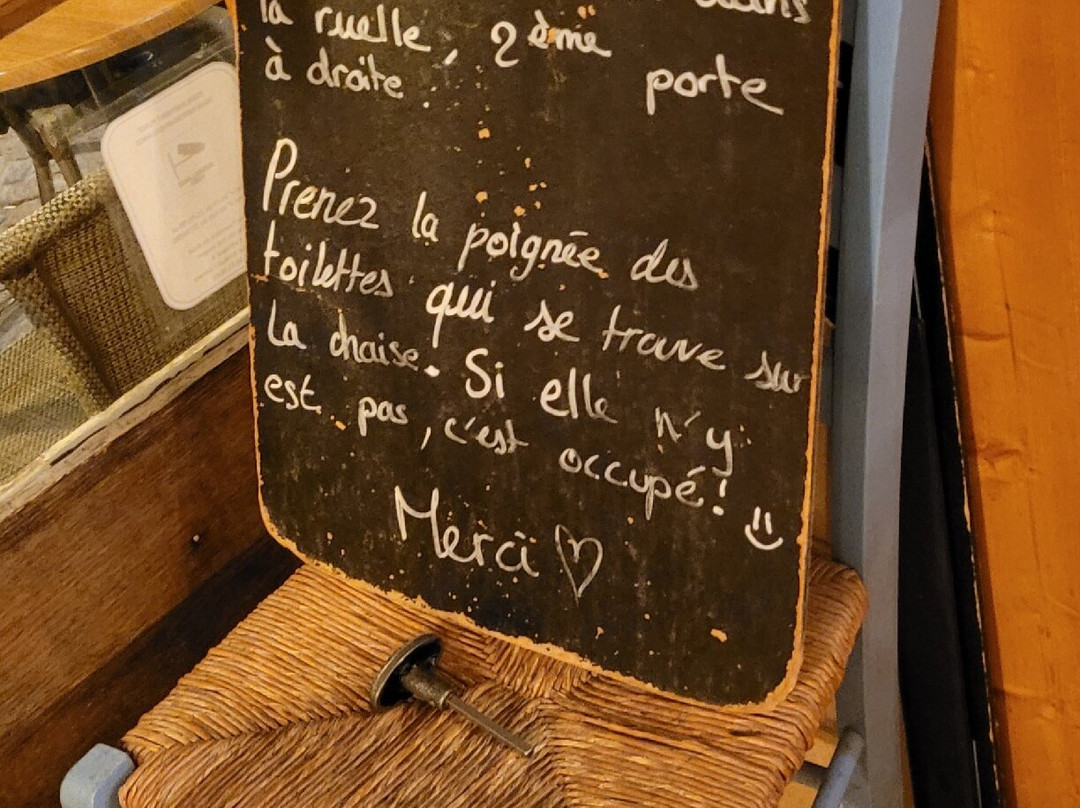 dans
la ruelle, 2ème porte
à droite.
Prenez la poignée des
toilettes qui se trouve sur
la chaise. Si elle n'y
est pas, c'est occupé!
Merci